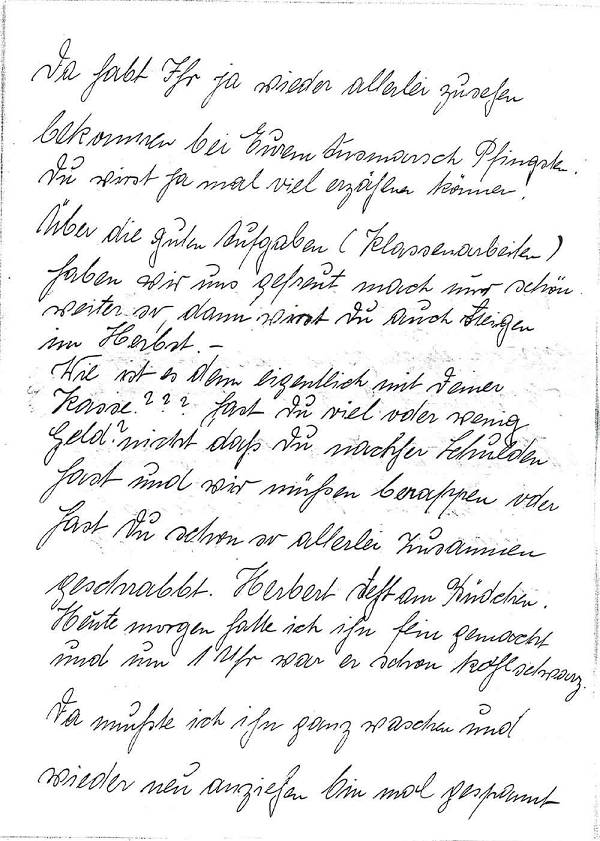 Da habt Ihr ja wieder allerlei zusehen
bekommen bei Eurem Ausmarsch Pfingsten.
Du wirst ja mal viel erzählen können!
Über die guten Aufgaben (Klassenarbeiten)
haben wir uns gefreut mach nur schön
weiter so, dann wirst Du auch steigen
im Herbst. –
Wie ist es denn eigentlich mit Deiner
Kasse??? hast Du viel oder wenig
Geld? nicht daß Du nachher Schulden
hast und wir müßen berappen oder
hast Du schon so allerlei zusammen
geschrabbt. Herbert steht am
Heute morgen hatte ich ihn fein gemacht
und um 1 Uhr war er schon kohlschwarz.
Da mußte ich ihn ganz waschen und
wieder neu anziehen bin mal gespannt